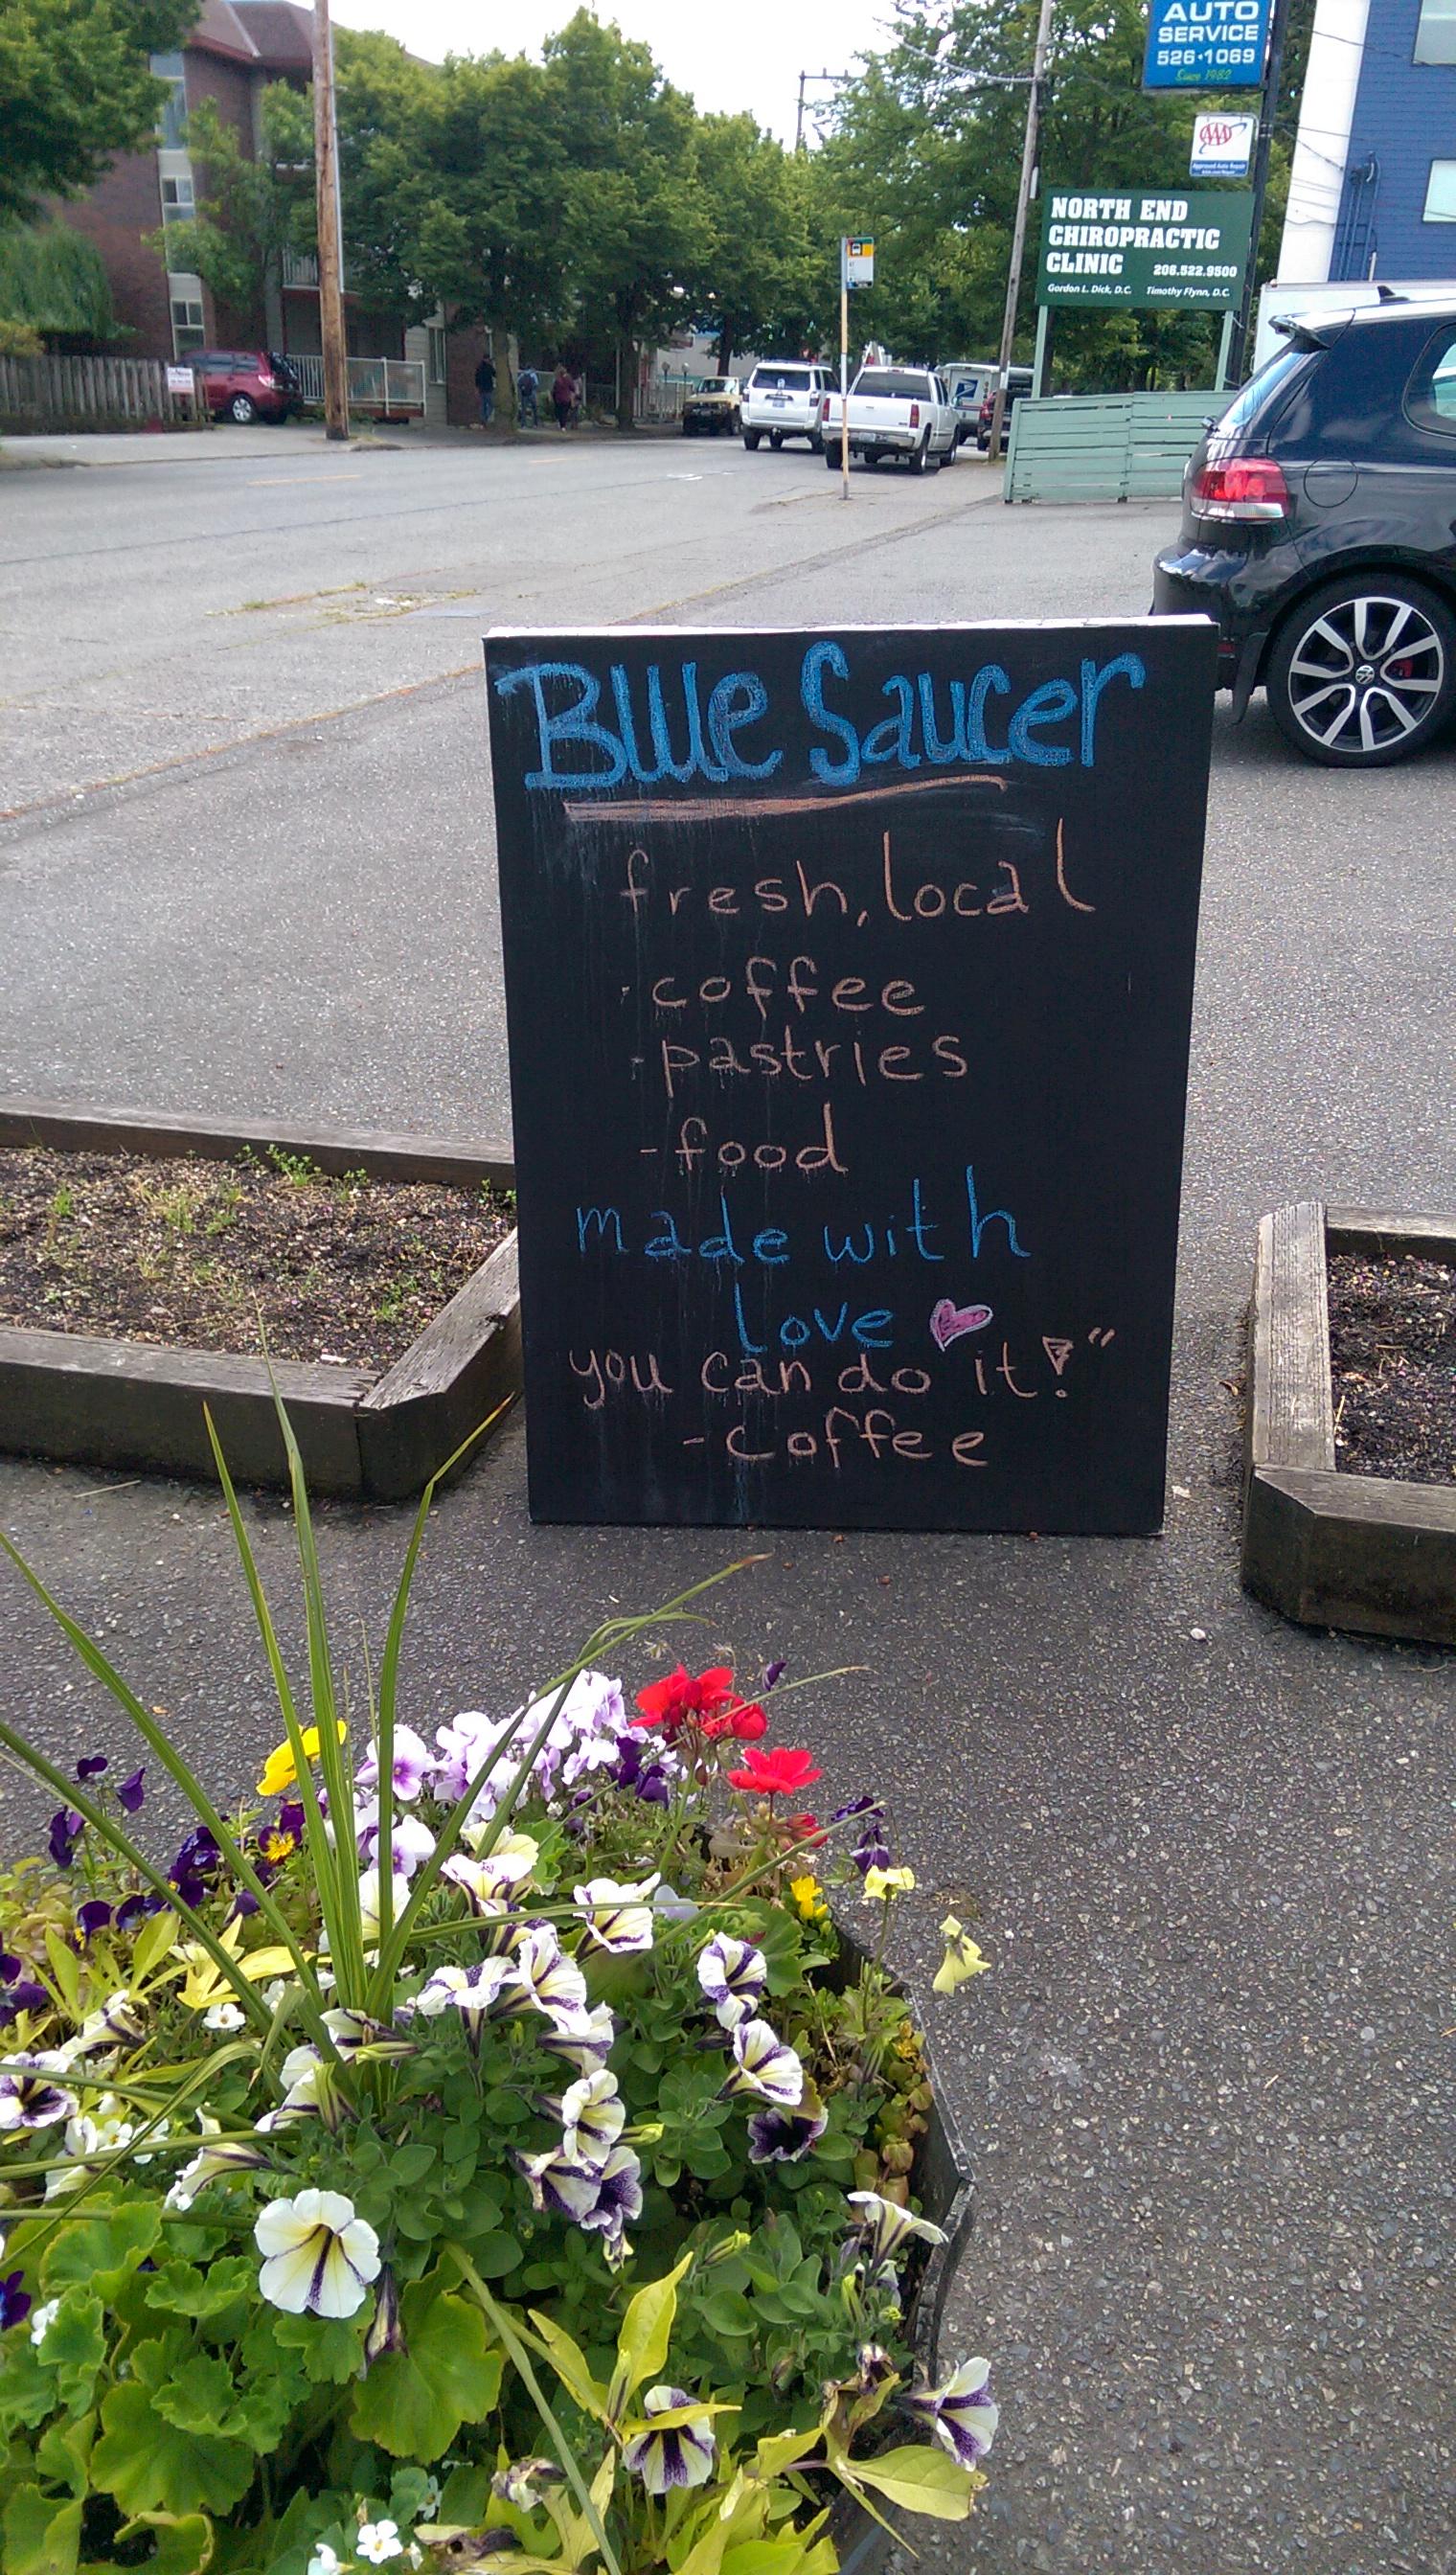 AUTO
SERVICE
526·1069
Since 1982
AAA
Approved Auto Repair
NORTH END
CHIROPRACTIC
CLINIC 206.522.9500
Gordon L. Dick, D.C. Timothy Flynn, D.C.
Blue Saucer
fresh, local
·coffee
·pastries
-food
made with
love
you can do it!”
-coffee